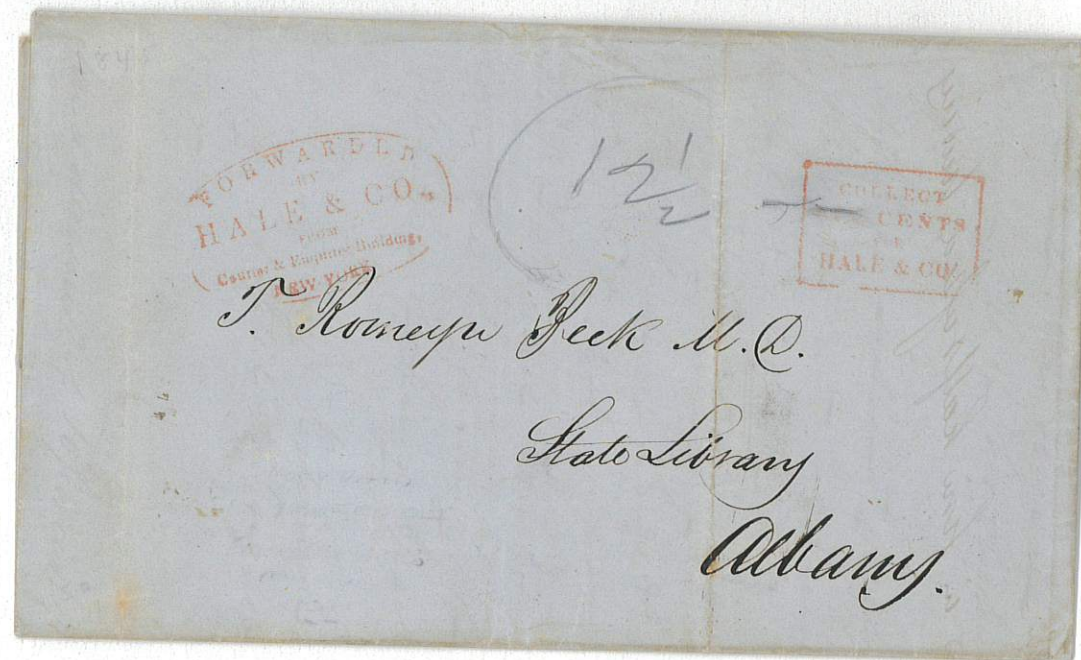 184
FORWARDED
BY
HALE & CO.
FROM
Courier & Enquirer Building,
NEW YORK
12½
COLLECT
CENTS
FOR
HALE & CO.
T. Romeyn Beck M.D.
State Library
Albany.